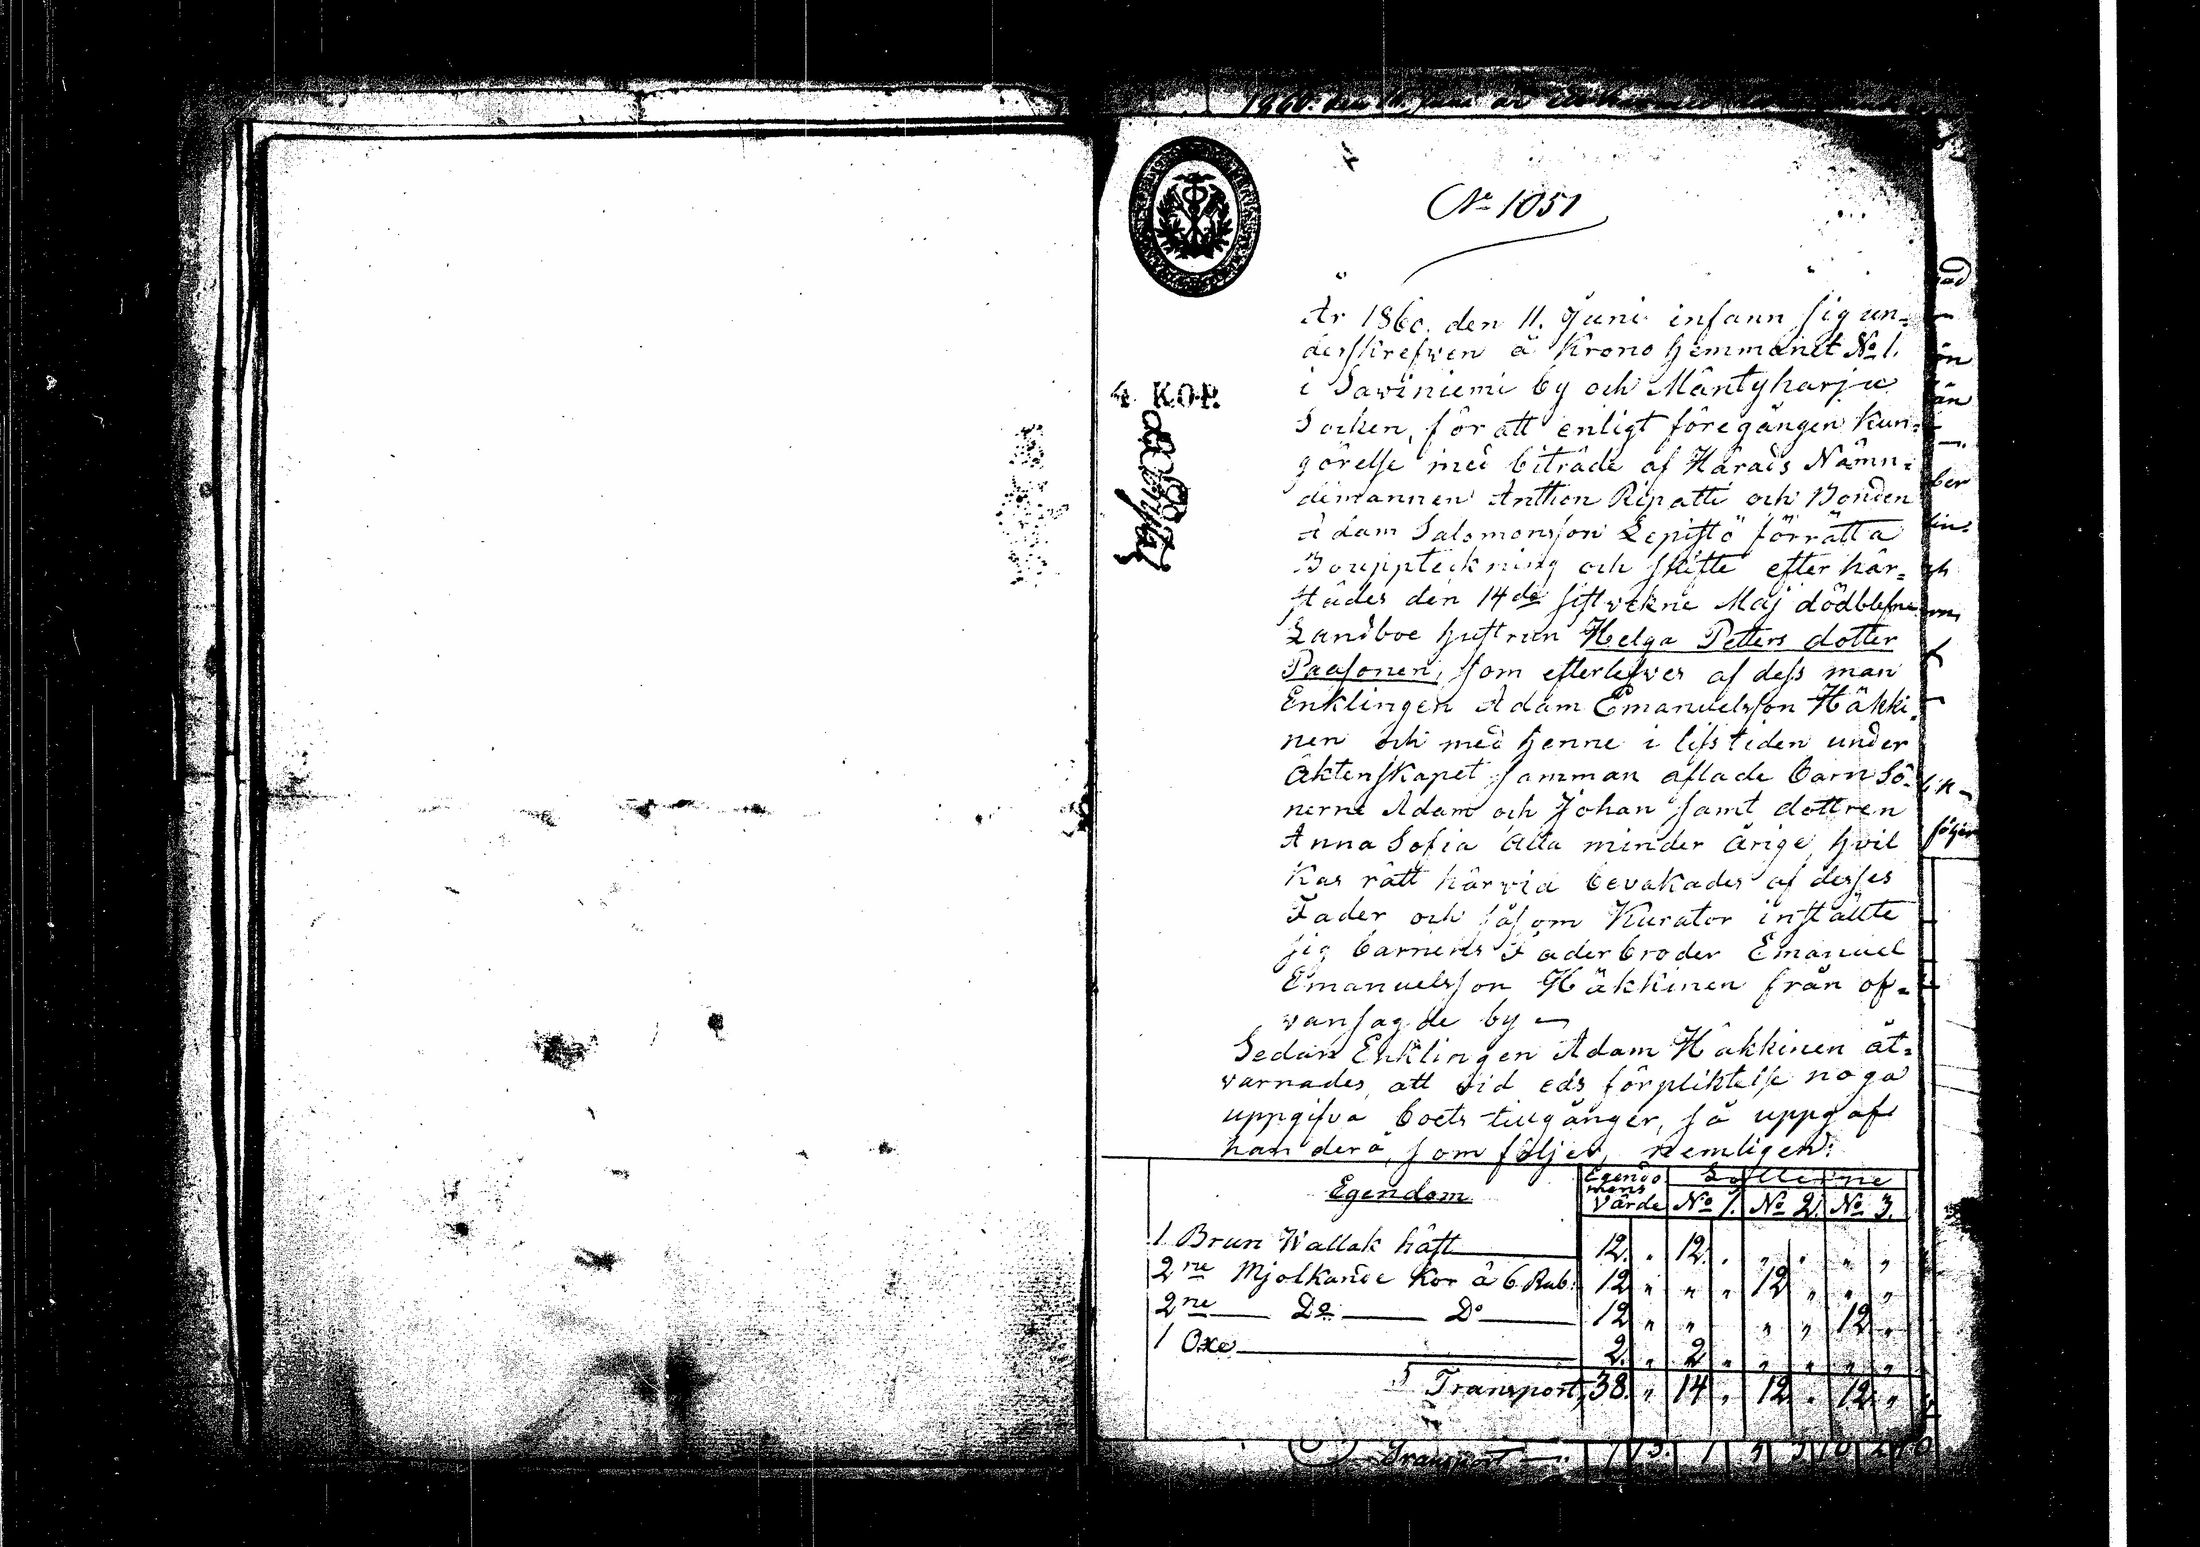 No 1051
4 KOP.
År 1860. den 11. Juni infann sig un=
derskrefwen å Krono Hemmanet No 1.
i Sawiniemi by och Mäntyharju
Socken, för att enligt föregången kun=
görelse med biträde af Härads Nämn=
demannen Anthon Ripatti och Bonden
Adam Salomonsson Lepistö förrätta
Bouppteckning och skifte efter här=
städes den 14de sistvekne Maj dödblefne
Landboe hustrun Helga Petters dotter
Paasonen, som efterlefves af dess man
Enklingen Adam Emanuelsson Häkki=
nen och med henne i lifstiden under
äktenskapet samman aflade barn Sö=
nerne Adam och Johan samt dottren
Anna Sofia alla minder årige, hvil
kas rätt härvid bevakades af desses
Fader och såsom Kurator inställte
sig barnens Faderbroder Emanuel
Emanuelsson Häkkinen från of=
vansagde by
Sedan Enklingen Adam Häkkinen åt=
varnades, att vid eds förpliktelse noga
uppgifva boets tillgånger, så uppgaf
han derå, som följer, nemligen:
Egendom Egendo mens Värde Lotterne No 1. No 2. No 3.
1 Brun Wallak häst 12. " 12. " " " " "
2ne Mjolkande Kor à 6. Rub. 12 " " " 12 " " "
2ne Do Do 12 " " " " 12 "
1 Oxe 2. " 2 " " " " "
Transport, 38. " 14 " 12 " 12 "
Transport